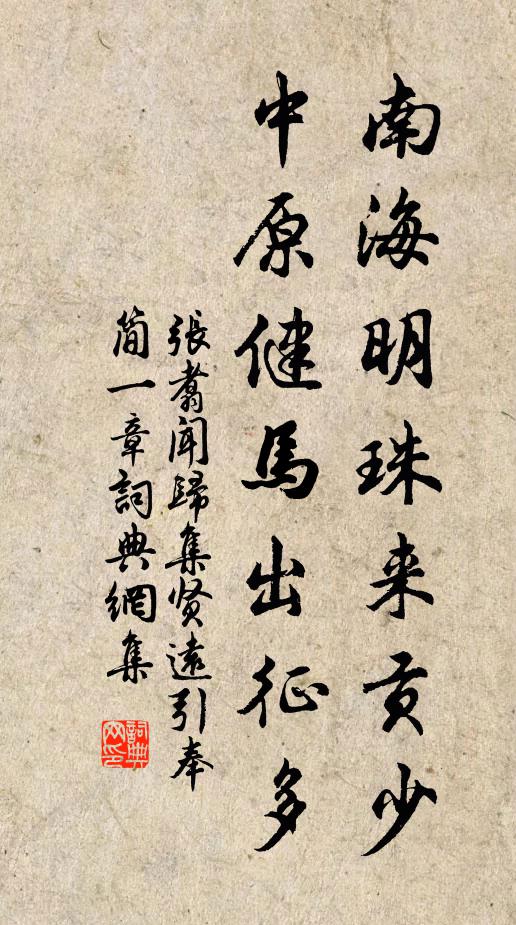 南海明珠来貢少
中原健馬出征多
張翥聞歸集贤遠引奉
简一章詞典網集
詞典网印